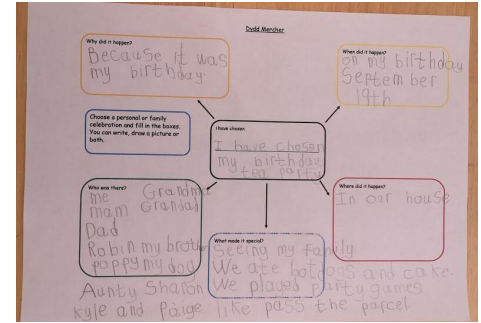 Dydd Mercher
Why did it happen?
Because it was
my birthday.
When did it happen?
on my birthday
September
19th
Choose a personal or family
celebration and fill in the boxes.
You can write, draw a picture or
both.
I have chosen
I have chosen
my birthday
tea party
Who was there?
me Grandma
mam Grandad
Dad
Robin my brother
poppy my dog
Aunty Sharon
Kyle and Paige
What made it special?
Seeing my family
We ate hotdogs and cake
We played party games
like pass the parcel
Where did it happen?
In our house